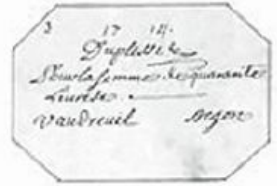 3 1714.
Duplessis
Pour la somme de quarante
Livres
Vaudreuil Begon